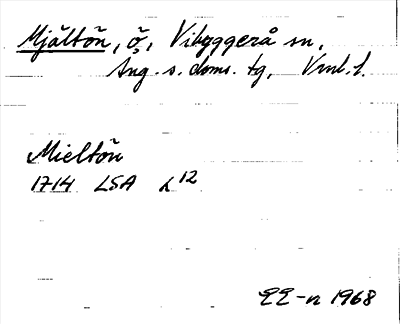 Mjältön, ö, Vibyggerå sn,
Ång. s. doms. tg, Vrnl. l.
Mieltön
1714 LSA L12
EE-n 1968